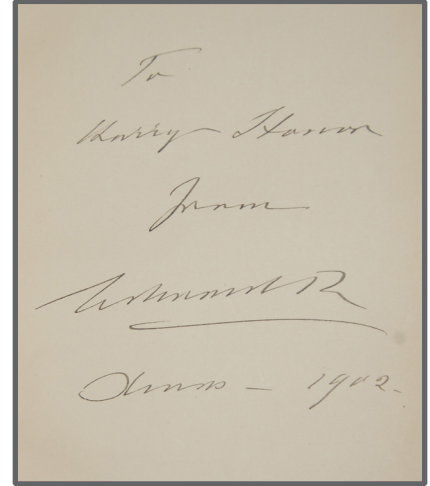 To
Harry Stonor
from
Edward R
Xmas — 1902.